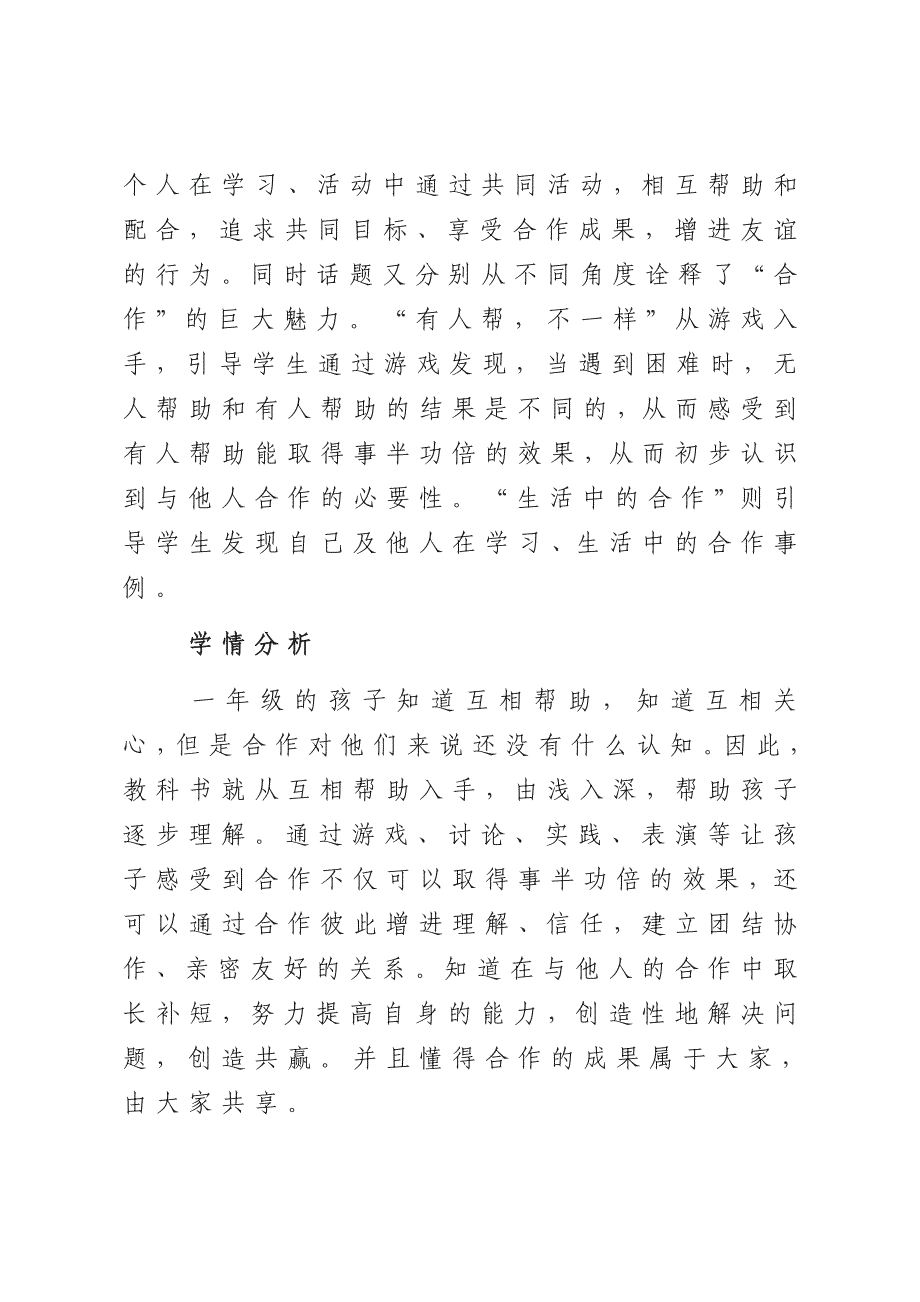 个人在学习、活动中通过共同活动，相互帮助和
配合，追求共同目标、享受合作成果，增进友谊
的行为。同时话题又分别从不同角度诠释了“合
作”的巨大魅力。“有人帮，不一样”从游戏入
手，引导学生通过游戏发现，当遇到困难时，无
人帮助和有人帮助的结果是不同的，从而感受到
有人帮助能取得事半功倍的效果，从而初步认识
到与他人合作的必要性。“生活中的合作”则引
导学生发现自己及他人在学习、生活中的合作事
例。
学情分析
一年级的孩子知道互相帮助，知道互相关
心，但是合作对他们来说还没有什么认知。因此，
教科书就从互相帮助入手，由浅入深，帮助孩子
逐步理解。通过游戏、讨论、实践、表演等让孩
子感受到合作不仅可以取得事半功倍的效果，还
可以通过合作彼此增进理解、信任，建立团结协
作、亲密友好的关系。知道在与他人的合作中取
长补短，努力提高自身的能力，创造性地解决问
题，创造共赢。并且懂得合作的成果属于大家，
由大家共享。